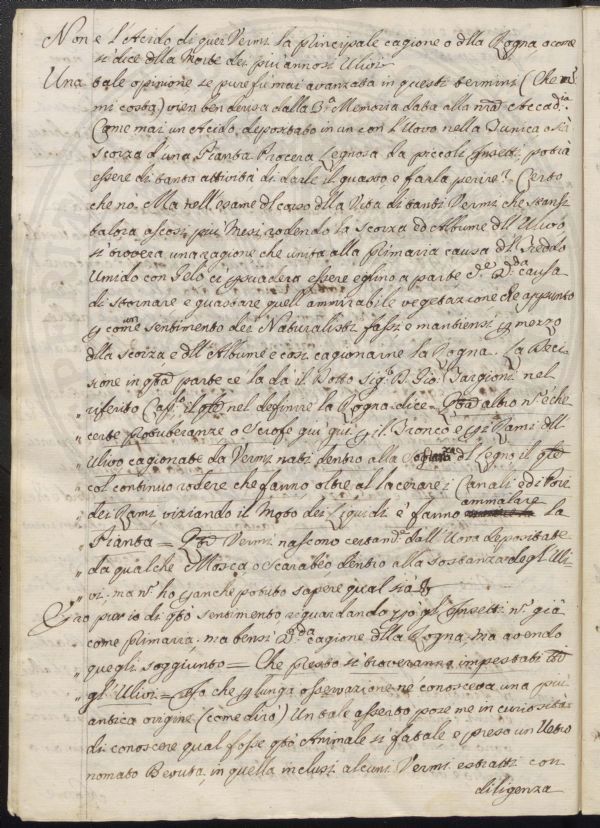 Non e l'Acido di quei Vermi la principale cagione o dlla Rogna o come
si dice dlla Morte dei più annosi Ulivi
Una tale opinione se pure fu mai avanzata in questi termini (che nº
mi costa) vien ben derusa dalla 3ª Memoria data alla Accad.ia
Come mai un Acido, deportato in un con l'Uovo nella Tunica o sia
scorza d'una Pianta Procera Legnosa da piccoli Insetti potrà
essere di tanta attività di darle il guasto, e farla perire? Certo
che no. Ma nell'esame dl caso dlla Vita di tanti Vermi che stansi
talora ascosi più Mesi rodendo la Scorza ed Albume dll'Ulivo
si trovera una ragione che unita alla Primaria causa dl freddo
Umido con Gelo ci psuaderà essere eglino a parte causa
di stornare e guastare quell'ammirabile vegetazione che appunto
p comun sentimento dei Naturalisti fassi e mantiensi p mezzo
dlla scorza e dll'Albume e così cagionarne la Rogna. La Deci-
sione in qta parte ce la da il Dotto sig.e D. Gio: Targioni nel
" riferito il qle nel definire la Rogna dice = altro nº è che
" certe protuberanze o Scrofe qui qui p il Tronco e p i Rami dll
" Ulivo cagionate da Vermi nati dentro alla dl Legno il qle
" col continuo rodere che fanno oltre al lacerare i Canali ed i Pori
" dei Rami viziando il Moto dei Liquidi e fanno ammalare la
" Pianta = Vermi nascono certam.e dall'Uova depositate
" da qualche Mosca, o Scarabeo dentro alla sostanza degl'Uli
" vi, ma nº ho p anche potuto sapere qual sia
Ero pur io di qto sentimento riguardando gl'Insetti nº già
come Primaria, ma bensì 2da cagione dlla Rogna, ma avendo
" quegli soggiunto = Che presto si troveranno impestati
" gl'Ulivi = Io che p lunga osservazione ne conosceva una più
antica origine (come dirò) Un tale asserto pose mi in curiosità
di conoscere qual fosse qto Animale sì fatale e preso un Vetro
nomato Bevuta, in quella inclusi alcuni Vermi estratti con
diligenza